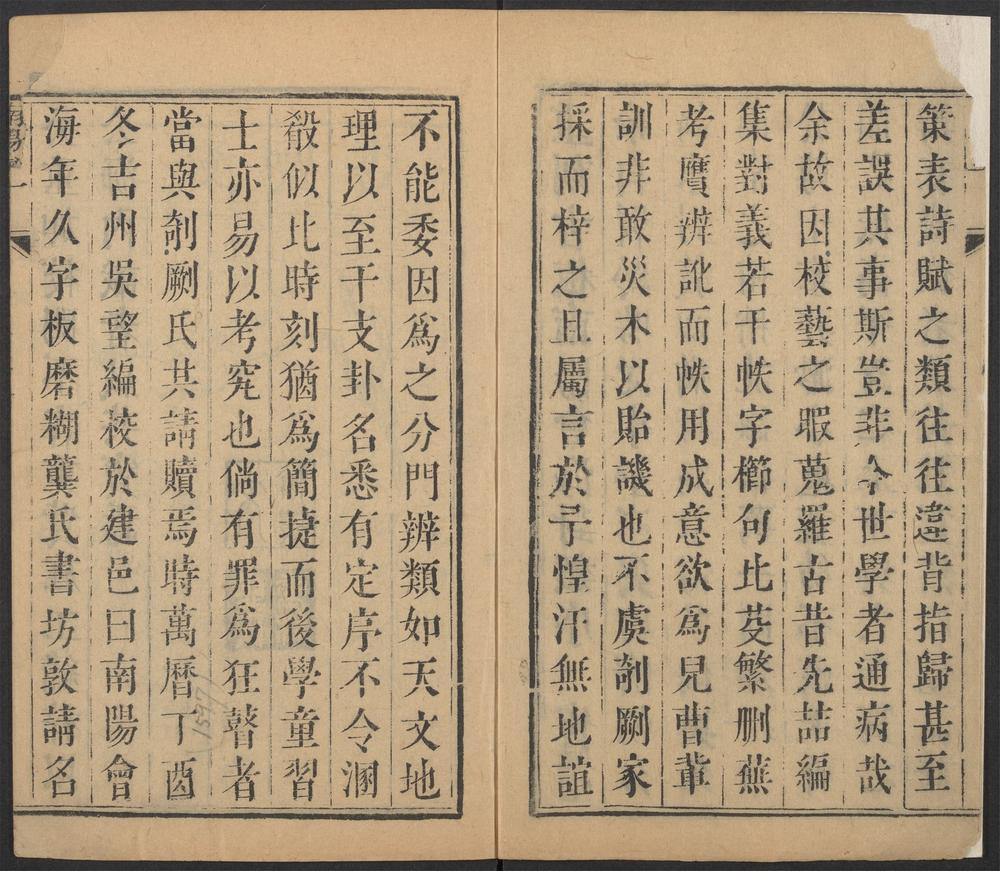 策表詩賦之類往往違背指歸甚至
差誤其事斯豈非今世學者通病哉
余故因校藝之暇蒐羅古昔先喆編
集對義若干帙字櫛句比芟繁刪蕪
考贋辨訛而帙用成意欲為兒曹輩
訓非敢災木以貽譏也不虞剞劂家
採而梓之且屬言於予惶汗無地誼
不能委因爲之分門辨類如天文地
理以至干支卦名悉有定序不令溷
殽似比時刻猶爲簡捷而後學童習
士亦易以考究也倘有罪爲狂瞽者
當與剞劂氏共請贖焉時萬曆丁酉
冬吉州吳望編校於建邑曰南陽會
海年久字板磨糊龔氏書坊敦請名
1597
一